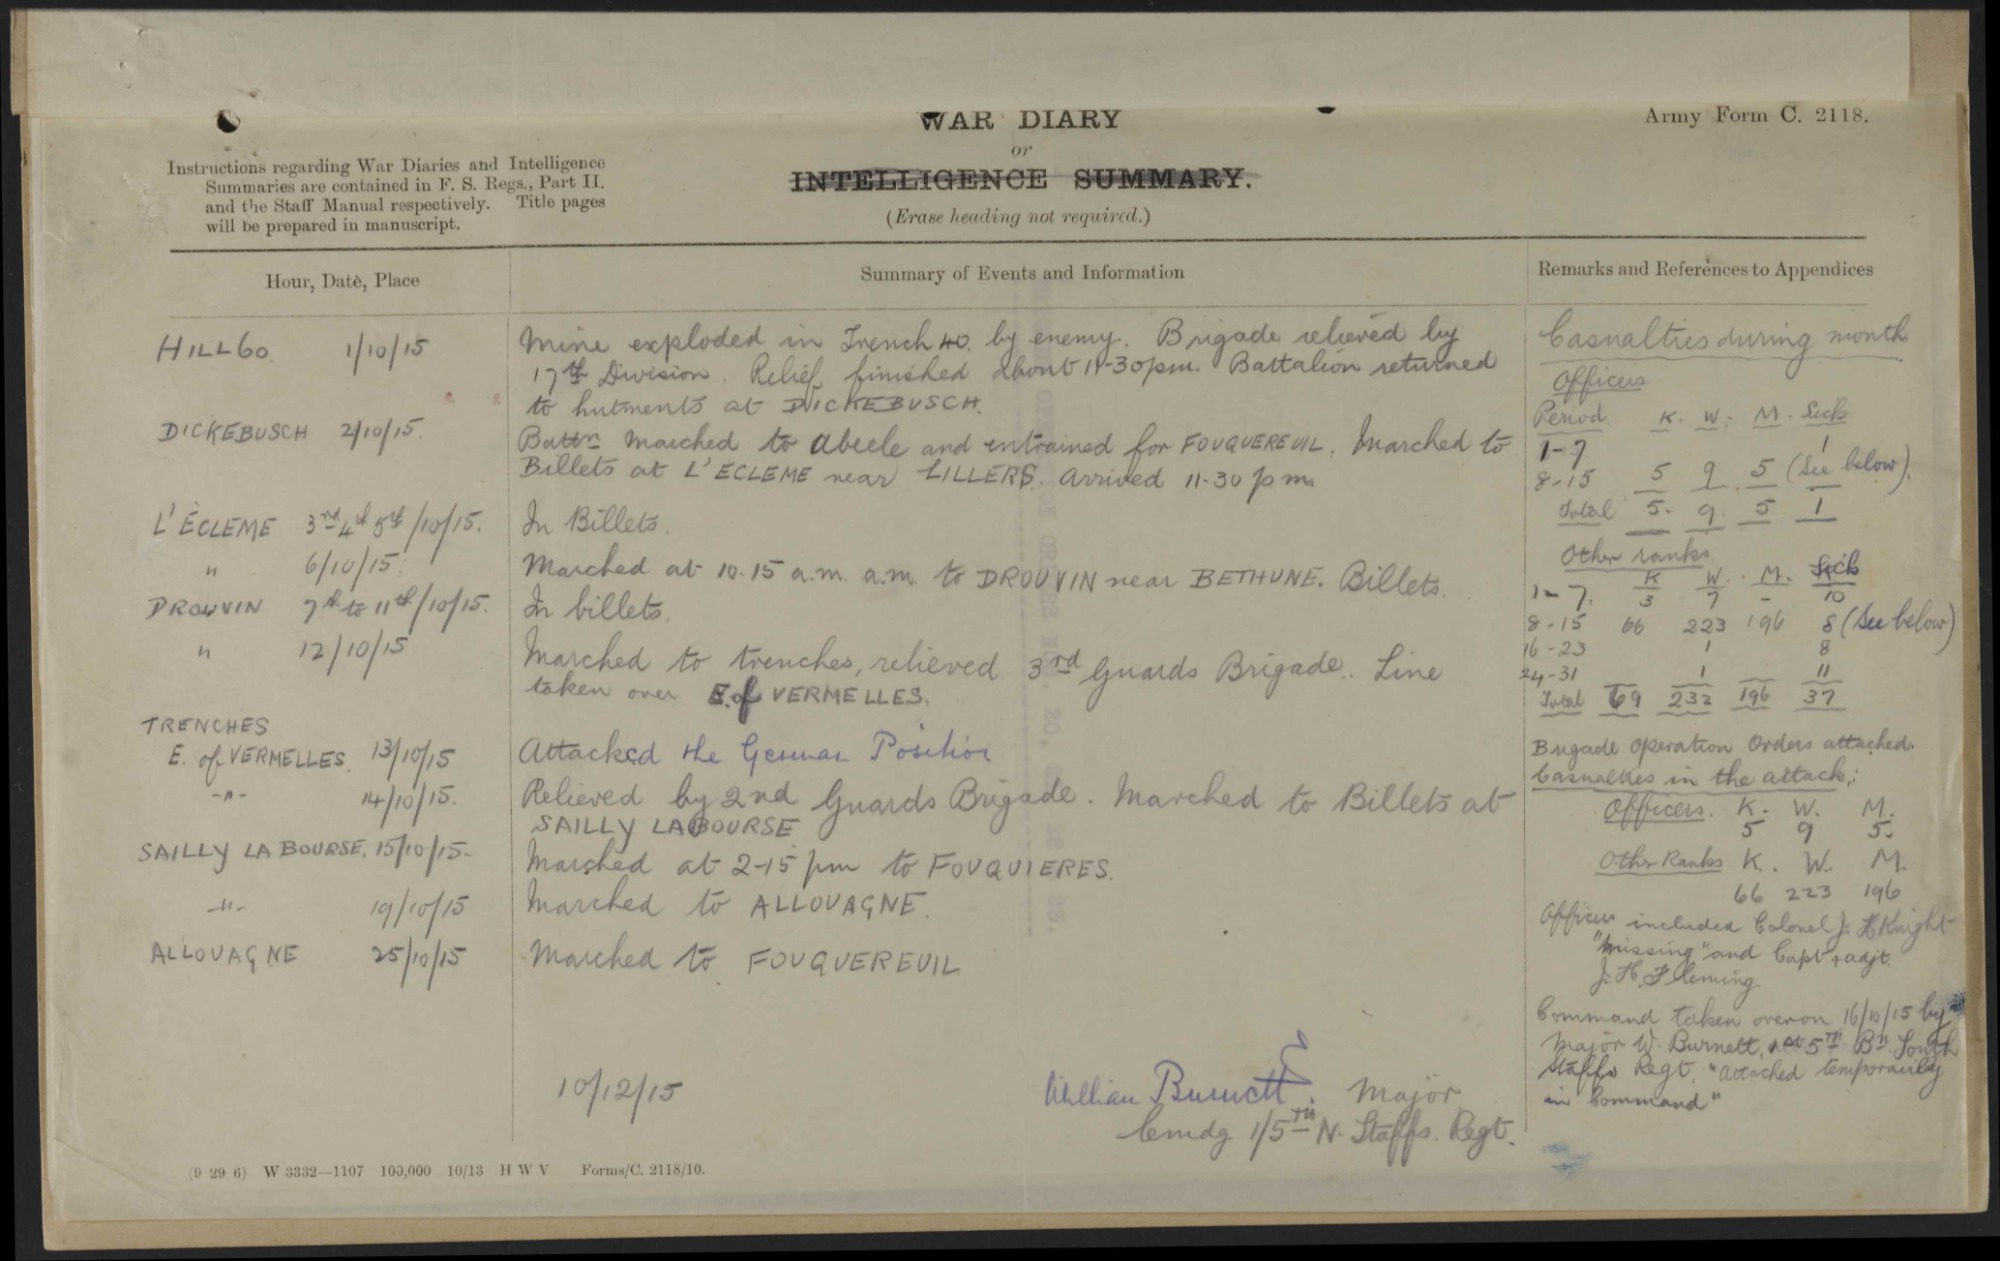 WAR DIARY
or
INTELLIGENCE SUMMARY.
(Erase heading not required.)
Army Form C. 2118.
Instructions regarding War Diaries and Intelligence
Summaries are contained in F. S. Regs., Part II.
and the Staff Manual respectively. Title pages
will be prepared in manuscript.
Hour, Date, Place
Summary of Events and Information
Remarks and References to Appendices
HILL 60. 1/10/15
Mine exploded in Trench 40. by enemy. Brigade relieved by
17th Division. Relief finished about 11-30 pm. Battalion returned
to hutments at DICKEBUSCH.
DICKEBUSCH 2/10/15.
Battn marched to Abeele and entrained for FOUQUEREUIL. Marched to
Billets at L'ECLEME near LILLERS. Arrived 11-30 pm.
L'ÉCLEME 3rd 4th 5th/10/15.
In Billets.
" 6/10/15.
Marched at 10-15 a.m. a.m. to DROUVIN near BETHUNE. Billets.
DROUVIN 7th to 11th/10/15.
In billets.
" 12/10/15
Marched to trenches, relieved 3rd Guards Brigade. Line
taken over E. of VERMELLES.
TRENCHES
E. of VERMELLES. 13/10/15
Attacked the German Position
-"- 14/10/15.
Relieved by 2nd Guards Brigade. Marched to Billets at
SAILLY LA BOURSE
SAILLY LA BOURSE. 15/10/15-
Marched at 2-15 pm to FOUQUIERES.
-"- 19/10/15
Marched to ALLOUAGNE.
ALLOUAGNE 25/10/15
Marched to FOUQUEREUIL
10/12/15
William Burnett. Major
Cmdg 1/5TH N. Staffs. Regt.
Casualties during month
Officers
Period. K. W. M. Sick
1-7 1
8-15 5 9 5 (See below).
Total 5. 9. 5 1
Other ranks.
K W. M. Sick
1-7. 3 7 - 10
8-15 66 223 196 8 (See below)
16-23 1 8
24-31 1 11
Total 69 232 196 37
Brigade Operation Orders attached.
Casualties in the attack:
Officers. K. W. M.
5 9 5.
Other Ranks K. W. M.
66 223 196
Officers included Colonel J. H Knight
"missing" and Capt & adjt.
J. H. Fleming
Command taken over on 16/10/15 by
Major W. Burnett, 5TH Bn. South
Staffs Regt. "attached temporarily
in Command"
(9 29 6) W 3332—1107 100,000 10/13 H W V Forms/C. 2118/10.